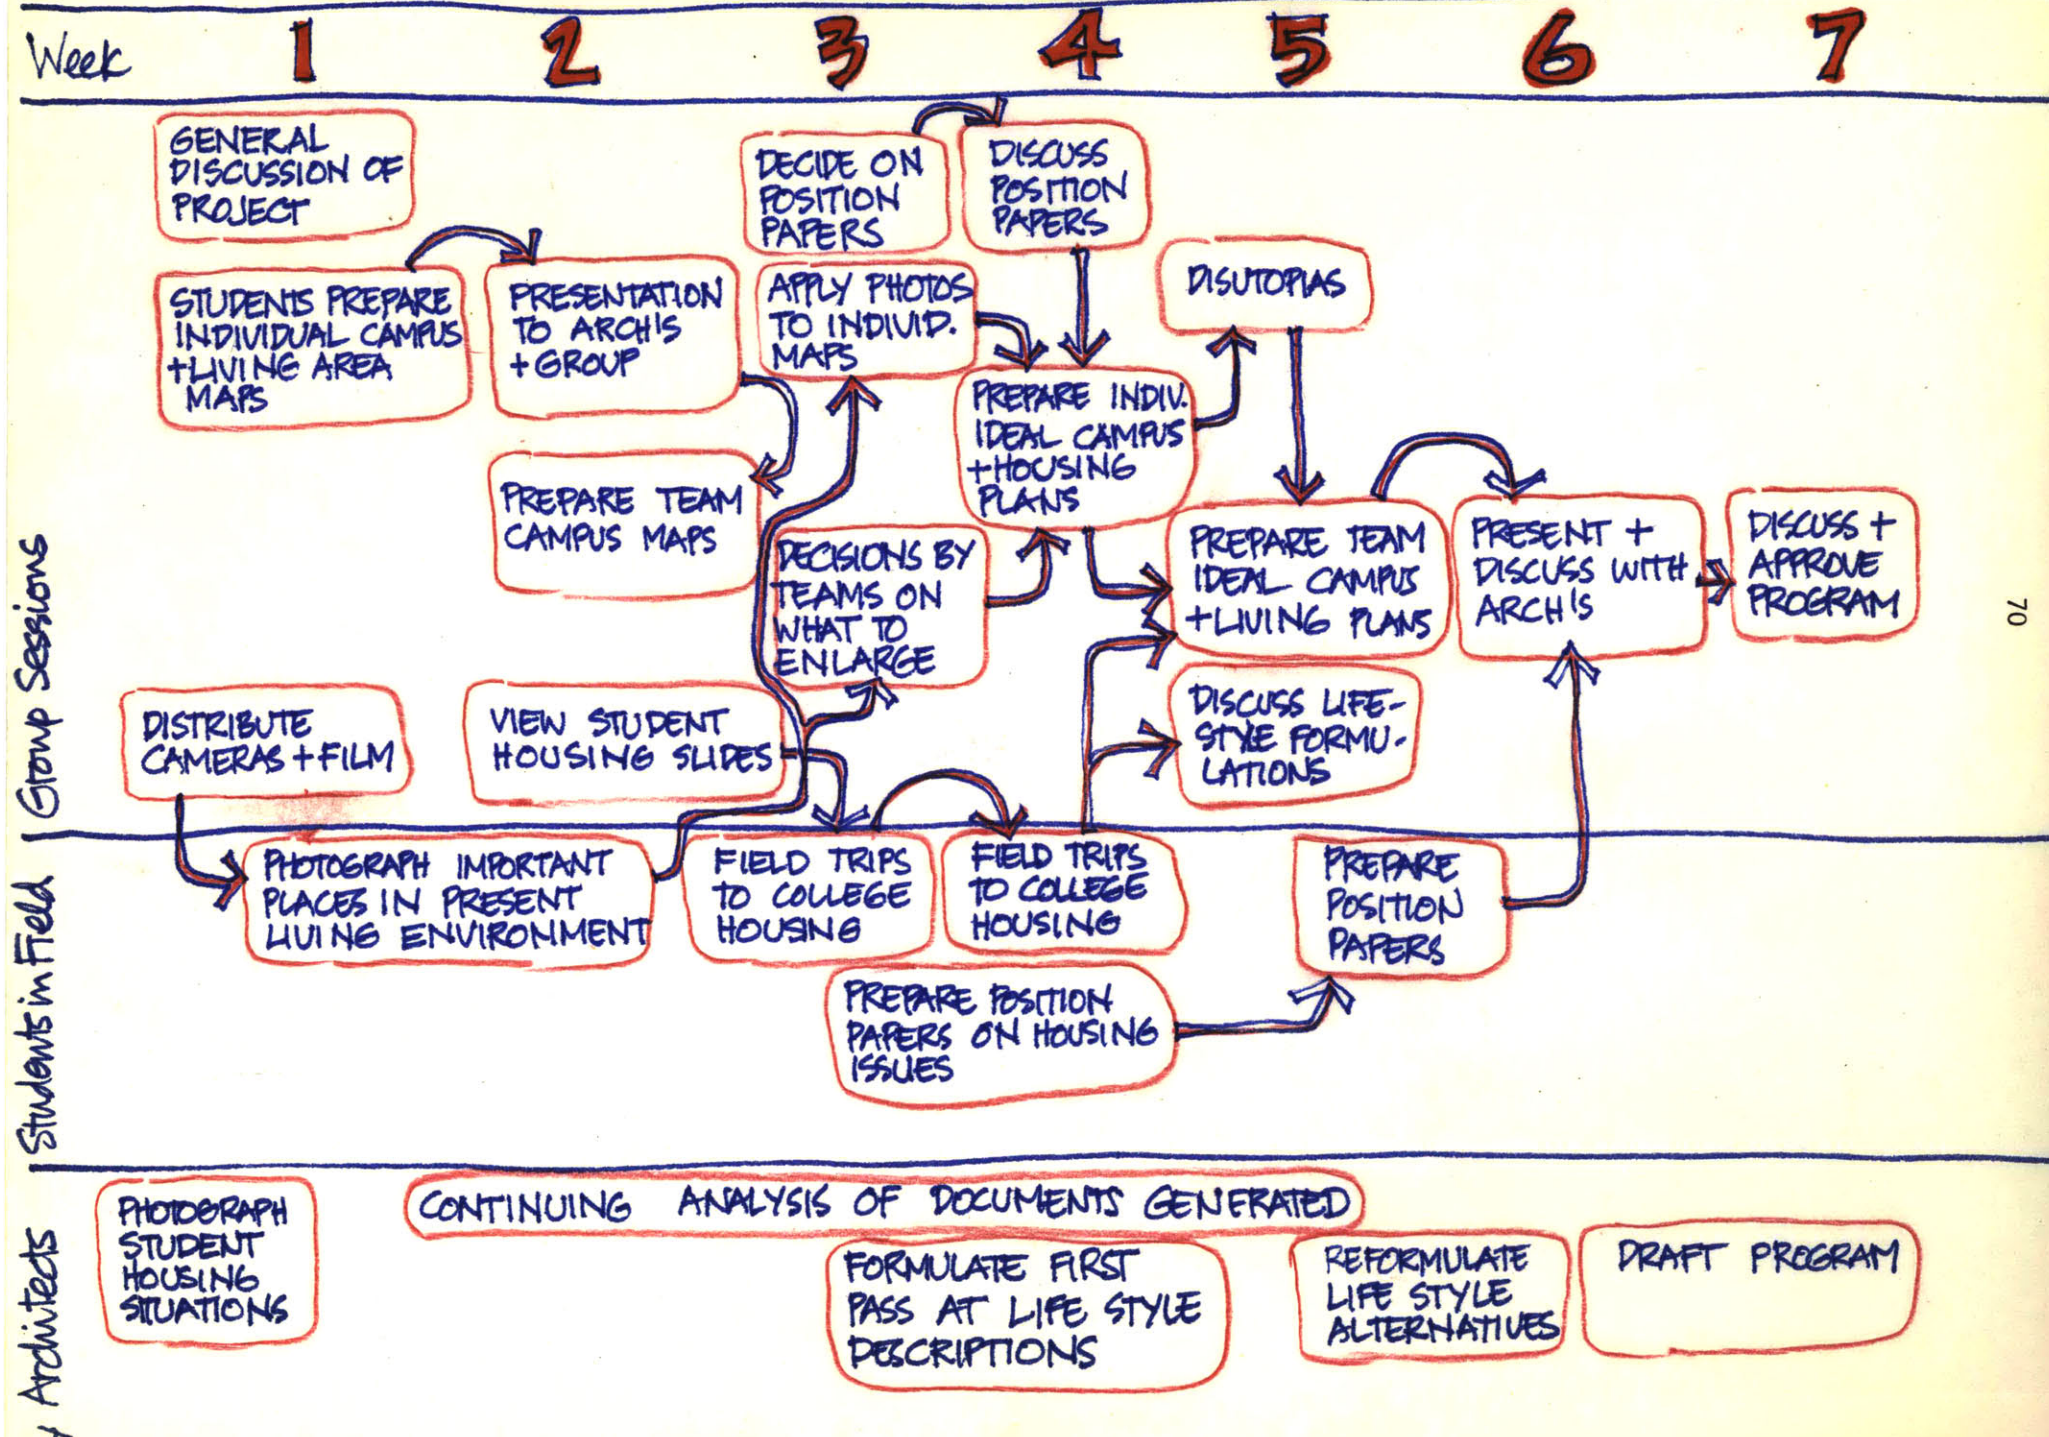 Week 1 2 3 4 5 6 7
GENERAL
DISCUSSION OF
PROJECT
STUDENTS PREPARE
INDIVIDUAL CAMPUS
+ LIVING AREA
MAPS
PRESENTATION
TO ARCH'S
+ GROUP
PREPARE TEAM
CAMPUS MAPS
DECIDE ON
POSITION
PAPERS
DISCUSS
POSITION
PAPERS
APPLY PHOTOS
TO INDIVID.
MAPS
PREPARE INDIV.
IDEAL CAMPUS
+ HOUSING
PLANS
DISUTOPIAS
DECISIONS BY
TEAMS ON
WHAT TO
ENLARGE
PREPARE TEAM
IDEAL CAMPUS
+ LIVING PLANS
PRESENT +
DISCUSS WITH
ARCH'S
DISCUSS +
APPROVE
PROGRAM
DISTRIBUTE
CAMERAS + FILM
VIEW STUDENT
HOUSING SLIDES
DISCUSS LIFE-
STYLE FORMU-
LATIONS
Group Sessions
70
PHOTOGRAPH IMPORTANT
PLACES IN PRESENT
LIVING ENVIRONMENT
FIELD TRIPS
TO COLLEGE
HOUSING
FIELD TRIPS
TO COLLEGE
HOUSING
PREPARE
POSITION
PAPERS
PREPARE POSITION
PAPERS ON HOUSING
ISSUES
Students in Field
PHOTOGRAPH
STUDENT
HOUSING
SITUATIONS
CONTINUING ANALYSIS OF DOCUMENTS GENERATED
FORMULATE FIRST
PASS AT LIFE STYLE
DESCRIPTIONS
REFORMULATE
LIFE STYLE
ALTERNATIVES
DRAFT PROGRAM
Architects